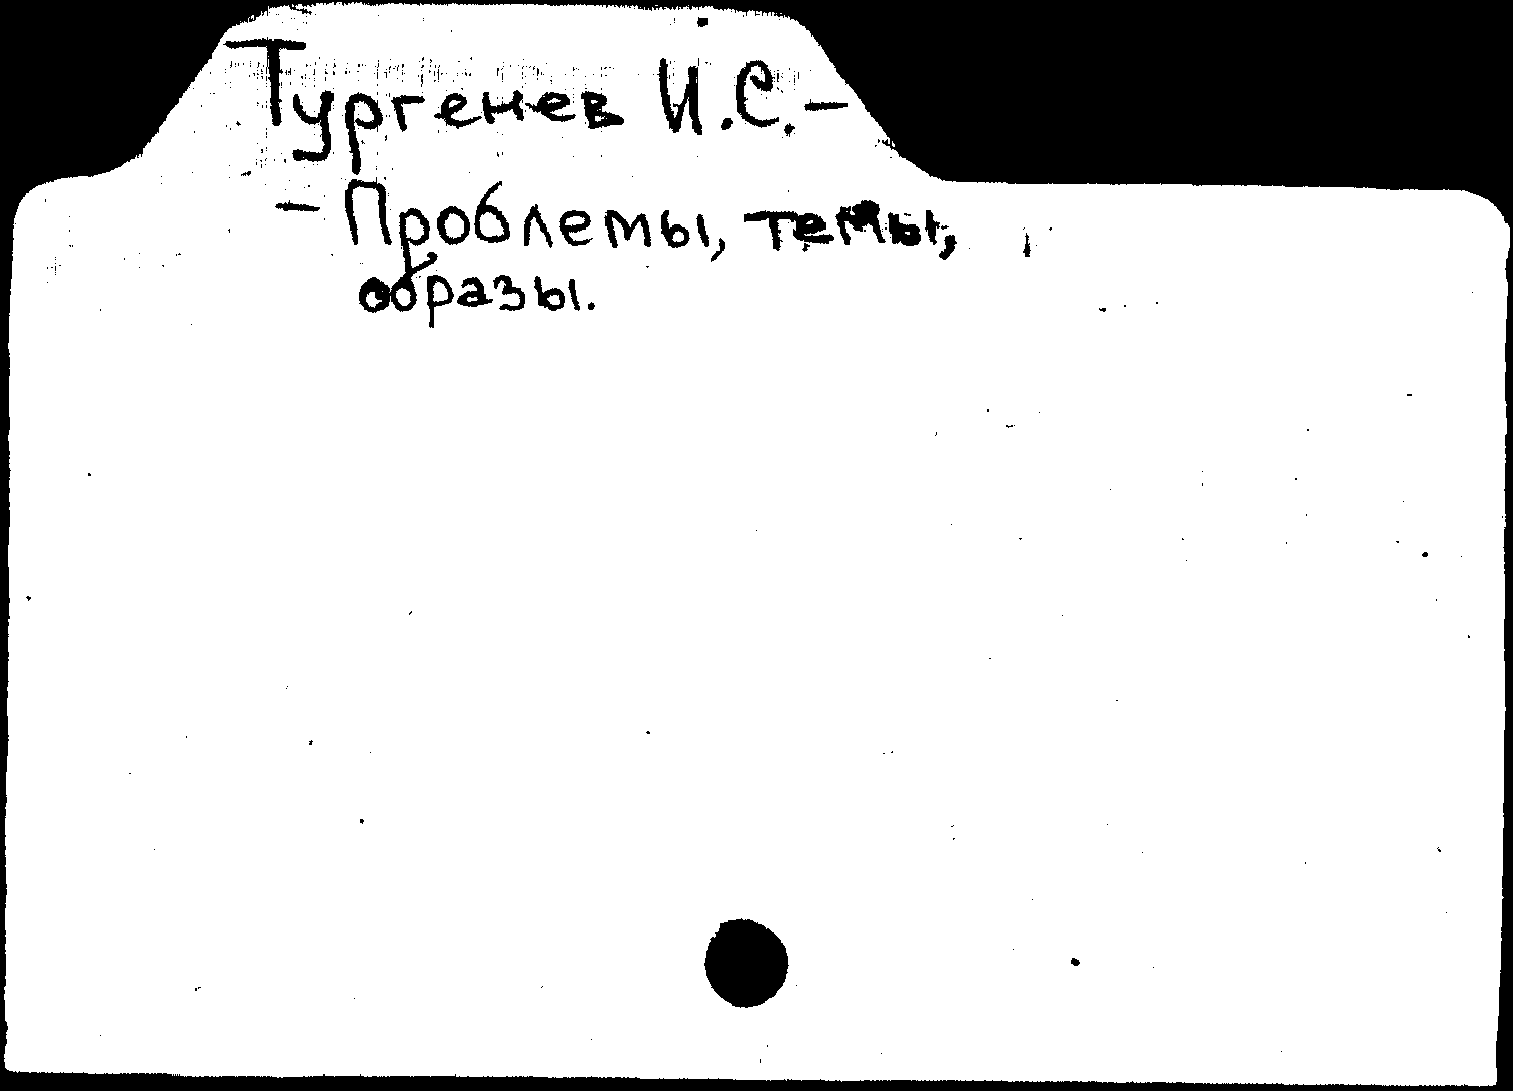 Тургенев И.С. –
– Проблемы, темы,
образы.